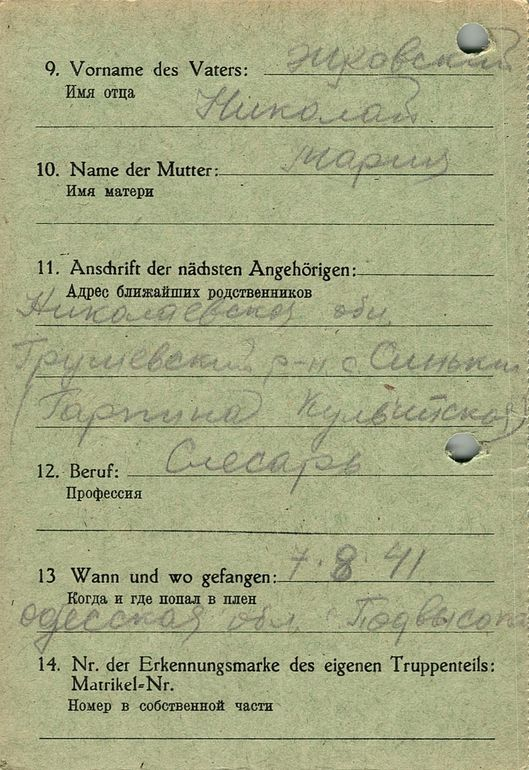 9. Vorname des Vaters: Жуковский
Имя отца
Николай
10. Name der Mutter: Мария
Имя матери
11. Anschrift der nächsten Angehörigen:
Адрес ближайших родственников
Николаевская обл.
Грушевский р-н с Синьки
(Гарпина
12. Beruf: Слесарь
Профессия
13 Wann und wo gefangen: 7. 8. 41
Когда и где попал в плен
Одесская обл.
14. Nr. der Erkennungsmarke des eigenen Truppenteils:
Matrikel-Nr.
Номер в собственной части